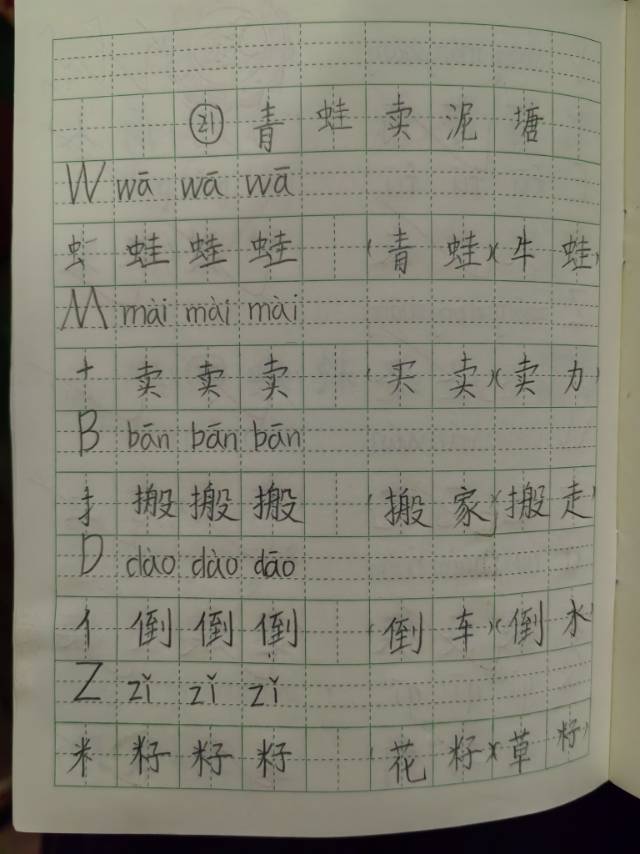 ㉑ 青蛙卖泥塘
W wā wā wā
虫 蛙 蛙 蛙 (青蛙)(牛蛙)
M mài mài mài
十 卖 卖 卖 (买卖)(卖力)
B bān bān bān
扌 搬 搬 搬 (搬家)(搬走)
D dào dào dāo
亻 倒 倒 倒 (倒车)(倒水)
Z zǐ zǐ zǐ
米 籽 籽 籽 (花籽)(草籽)